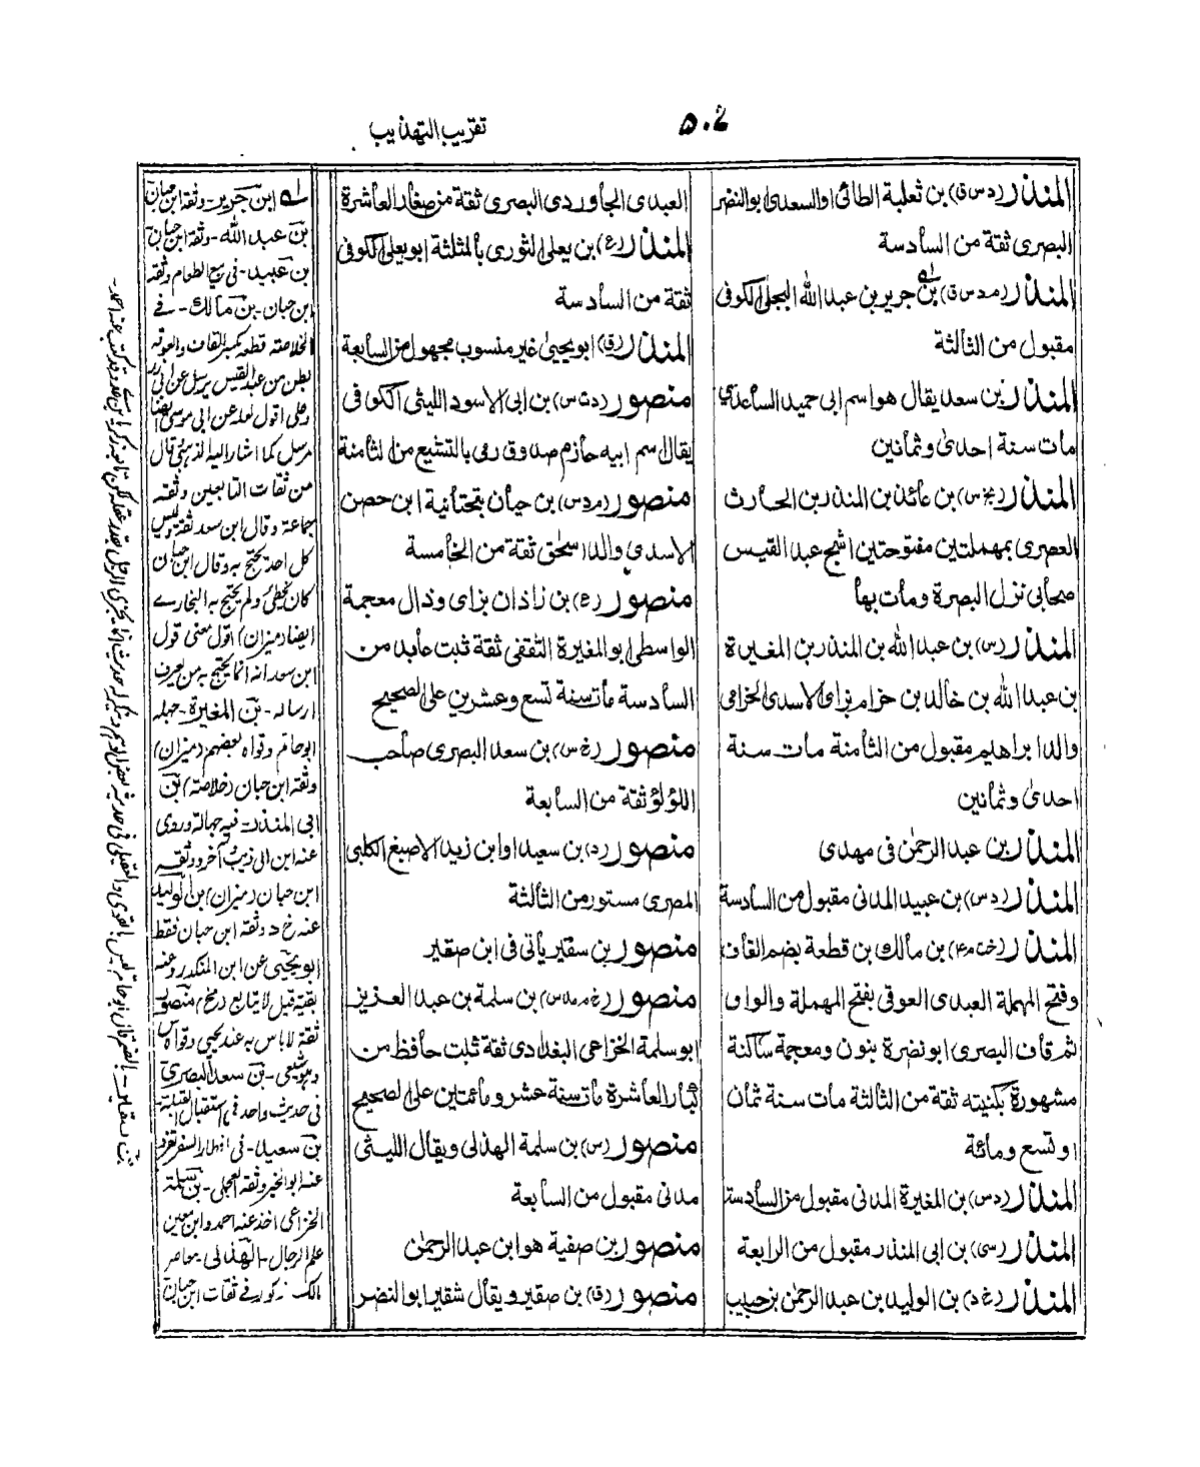 تقريب التهذيب
٥٠٢
المنذر (د س ق) بن ثعلبة الطائى او السعدى ابو النضر
البصرى ثقة من السادسة
المنذر (م د س ق) بن جرير بن عبد الله البجلى الكوفى
مقبول من الثالثة
المنذر بن سعد يقال هو اسم ابى حميد الساعدي
مات سنة احدى وثمانين
المنذر (بخ س) بن عائذ بن المنذر بن الحارث
العصرى بمهملتين مفتوحتين اشج عبد القيس
صحابى نزل البصرة ومات بها
المنذر (س) بن عبد الله بن المنذر بن المغيرة
بن عبد الله بن خالد بن حزام بزاى الاسدى الحزامى
والد ابراهيم مقبول من الثامنة مات سنة
احدى وثمانين
المنذر بن عبد الرحمن فى مهدى
المنذر (د س) بن عبيد المدنى مقبول من السادسة
المنذر (خت م ٤) بن مالك بن قطعة بضم القاف
وفتح المهملة العبدى العوقى بفتح المهملة والواو
ثم قاف البصرى ابو نضرة بنون ومعجمة ساكنة
مشهورة بكنيته ثقة من الثالثة مات سنة ثمان
او تسع ومائة
المنذر (د س) بن المغيرة المدنى مقبول من السادسة
المنذر (سى) بن ابى المنذر مقبول من الرابعة
المنذر (غ د) بن الوليد بن عبد الرحمن بن حبيب
العبدى الجاوردى البصرى ثقة من صغار العاشرة
المنذر (ع) بن يعلى الثورى بالمثلثة ابو يعلى الكوفى
ثقة من السادسة
المنذر (ق) ابو يحيى غير منسوب مجهول من السابعة
منصور (د ت س) بن ابى الاسود الليثى الكوفى
يقال اسم ابيه حازم صدوق رمى بالتشيع من الثامنة
منصور (م د س) بن حيان بتحتانية ابن حصن
الاسدي والد اسحق ثقة من الخامسة
منصور (ع) بن زاذان بزاى وذال معجمة
الواسطى ابو المغيرة الثقفى ثقة ثبت عابد من
السادسة مات سنة تسع وعشرين على الصحيح
منصور (غ س) بن سعد البصرى صاحب
اللؤلؤ ثقة من السابعة
منصور (د) بن سعيد او ابن زيد الاصبغ الكلبى
المصرى مستور من الثالثة
منصور بن سقير يأتى فى ابن صقير
منصور (خ م مد س) بن سلمة بن عبد العزيز
ابو سلمة الخزاعى البغدادى ثقة ثبت حافظ من
كبار العاشرة مات سنة عشر ومائتين على الصحيح
منصور (س) بن سلمة الهذلى ويقال الليثى
مدنى مقبول من السابعة
منصور بن صفية هو ابن عبد الرحمن
منصور (ق) بن صقير ويقال شقير ابو النضر
ابن جرير - وثقه ابن حبان
بن عبد الله - وثقه ابن حبان
بن عبيد - فى بيع الطعام وثقه
ابن حبان - بن مالك - فے
الخلاصة قطعة بكسر القاف والعوقة
بطن من عبد القيس يرسل عن ابى ذر
مرسل كما اشار اليه الذهبى قال
من ثقات التابعين وثقه
جماعة وقال ابن سعد ثقة وليس
كل احد يحتج به وقال ابن حبان
كان يخطئ ولم يحتج به البخارے
ايضا (ميزان) اقول معنى قول
ابن سعد انه انما يحتج به من يعرف
ارساله - بن المغيرة - جهله
ابو حاتم وقواه بعضهم (ميزان)
وثقه ابن حبان (خلاصه) بن
ابى المنذر - فيه جهالة وروى
عنه ابن ابى ذئب آخر وثقه
ابن حبان (ميزان) بن الوليد
عنه خ د وثقه ابن حبان فقط
ابو يحيى عن ابن المنكدر وعنه
بقية قيل لا يتابع
ثقة لا باس به عند يحيى وقواه س
وهو شيعى - بن سعد البصرى
فى حديث واحد فى استقبال القبلة -
بن سعيد - فى افطار السفر تفرد
عنه ابو الخير وثقه العجلى - بن سلمة
الخزاعى اخذ عنه احمد وابن معين
علم الرجال - الهذلى - معاصر
مالك مذكور فے ثقات ابن حبان